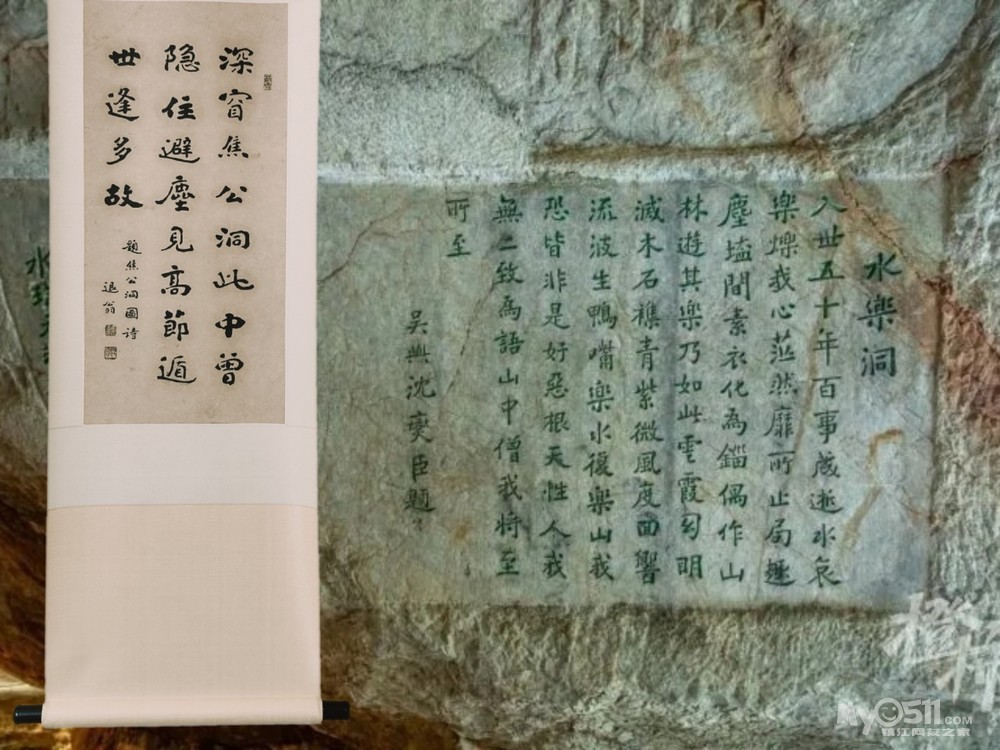 深窅焦公洞此中曾
隐住避塵見高節遁
世逢多故
題焦公洞圖詩
退翁
水樂洞
入世五十年百事成逝水哀
樂爍我心茫然靡所止局趣
塵壒間素衣化為緇偶作山
林遊其樂乃如此雲霞幻明
滅木石襍青紫微風度面響
流波生鴨嘴樂水復樂山我
恐皆非是好惡根天性人我
無二致為語山中僧我將至
所至
吳興沈爕臣題
My0511.COM
镇江网友之家